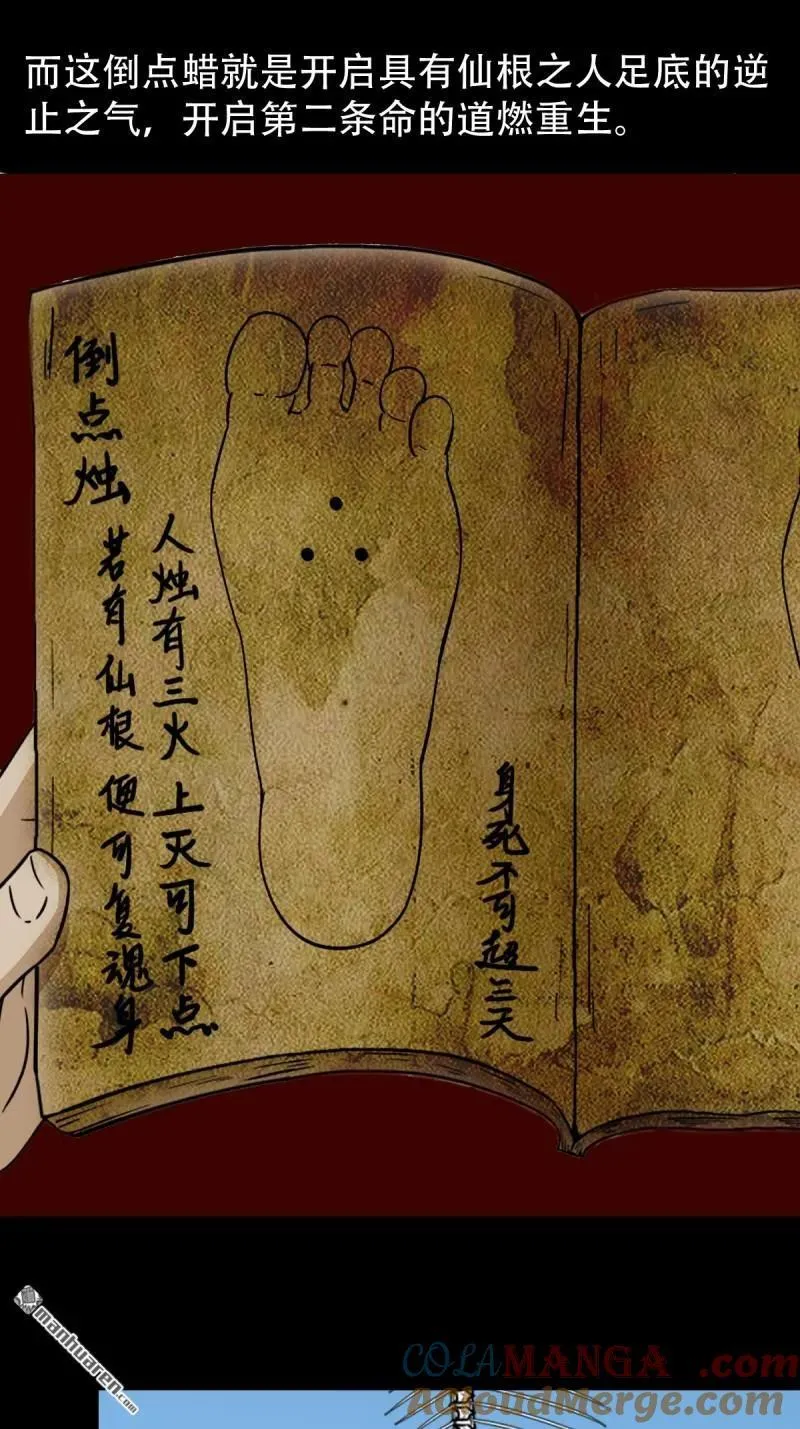 而这倒点蜡就是开启具有仙根之人足底的逆
止之气，开启第二条命的道燃重生。
倒点烛
人烛有三火上灭可下点
若有仙根便可复魂身
身死不可超三天
manhuaren.com
COLAMANGA.com
ACloudMerge.com